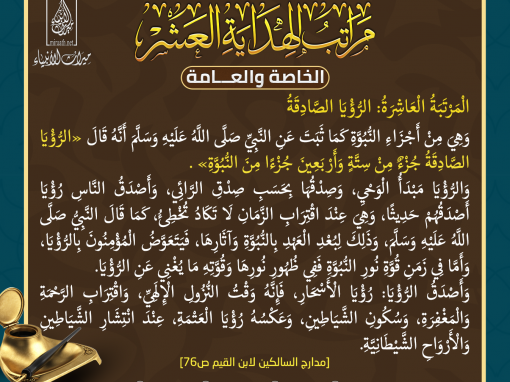 مَرَاتِبُ الهِدَايَةِ العَشْر
ميراث الأنبياء
miraath.net
الخاصة والعـــامة
الْمَرْتَبَةُ الْعَاشِرَةُ: الرُّؤْيَا الصَّادِقَةُ
وَهِيَ مِنْ أَجْزَاءِ النُّبُوَّةِ كَمَا ثَبَتَ عَنِ النَّبِيِّ صَلَّى اللَّهُ عَلَيْهِ وَسَلَّمَ أَنَّهُ قَالَ «الرُّؤْيَا
الصَّادِقَةُ جُزْءٌ مِنْ سِتَّةٍ وَأَرْبَعِينَ جُزْءًا مِنَ النُّبُوَّةِ» .
وَالرُّؤْيَا مَبْدَأُ الْوَحْيِ، وَصِدْقُهَا بِحَسَبِ صِدْقِ الرَّائِي، وَأَصْدَقُ النَّاسِ رُؤْيَا
أَصْدَقُهُمْ حَدِيثًا، وَهِيَ عِنْدَ اقْتِرَابِ الزَّمَانِ لَا تَكَادُ تُخْطِئُ، كَمَا قَالَ النَّبِيُّ صَلَّى
اللَّهُ عَلَيْهِ وَسَلَّمَ، وَذَلِكَ لِبُعْدِ الْعَهْدِ بِالنُّبُوَّةِ وَآثَارِهَا، فَيَتَعَوَّضُ الْمُؤْمِنُونَ بِالرُّؤْيَا،
وَأَمَّا فِي زَمَنِ قُوَّةِ نُورِ النُّبُوَّةِ فَفِي ظُهُورِ نُورِهَا وَقُوَّتِهِ مَا يُغْنِي عَنِ الرُّؤْيَا.
وَأَصْدَقُ الرُّؤْيَا: رُؤْيَا الْأَسْحَارِ، فَإِنَّهُ وَقْتُ النُّزُولِ الْإِلَهِيِّ، وَاقْتِرَابِ الرَّحْمَةِ
وَالْمَغْفِرَةِ، وَسُكُونِ الشَّيَاطِينِ، وَعَكْسُهُ رُؤْيَا الْعَتْمَةِ، عِنْدَ انْتِشَارِ الشَّيَاطِينِ
وَالْأَرْوَاحِ الشَّيْطَانِيَّةِ.
[مدارج السالكين لابن القيم ص76]